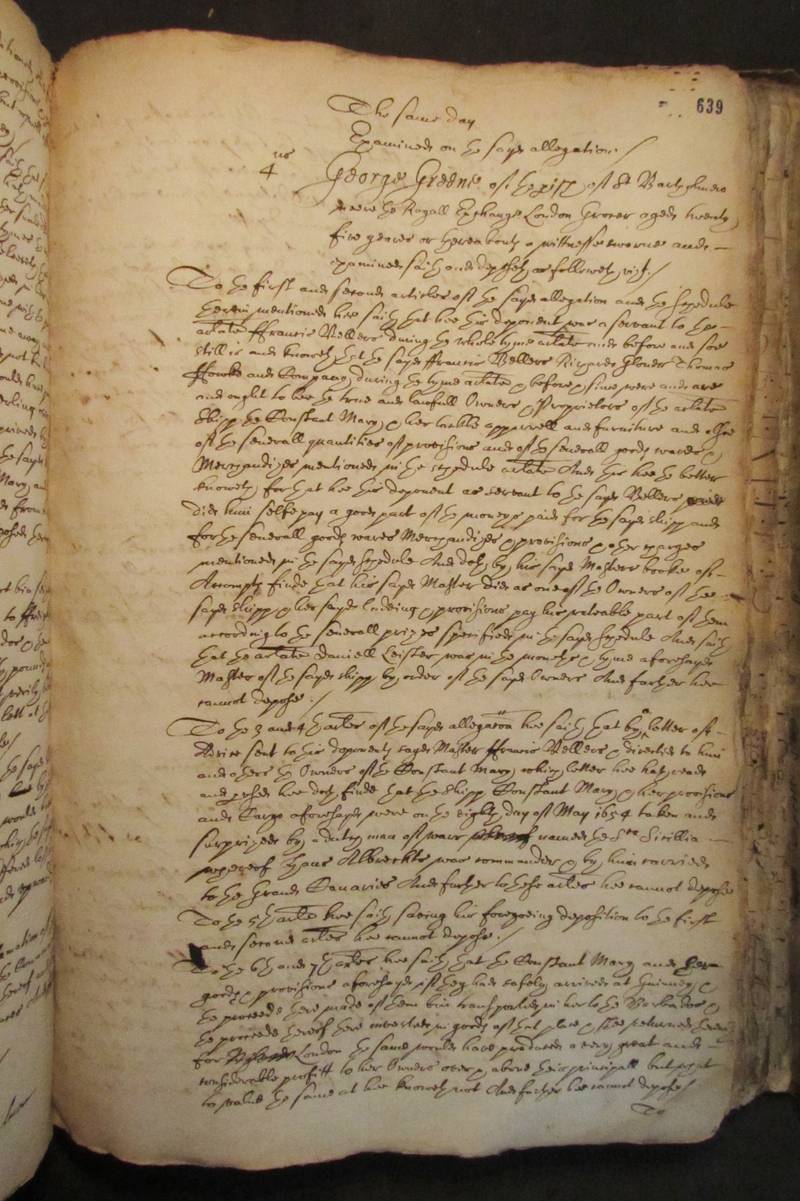 639
The same day
Examined on the sayd allegation /
4us
George Greene of the pish of St Bartholmew
neere the Royall Exchange London Grocer aged twenty
five yeares or thereabouts a wittnesse sworne and
examined saith and deposeth as followeth vizt. /
To the first and second articles of the sayd allegation and the schedule
therein mentioned hee saith that hee this deponent was a servant to the
arlate ffrancis Vellers during the whole tyme arlate and before and soe
still is and knoweth that the sayd ffrancis Vellers Richard Glover Thomas
and Company during the tyme arlate & before & since were and are
and ought to bee the true and lawfull Owners & Proprietors of the arlate
Shipp the Constant Mary & her tackle apparrell and furniture and alsoe
of the severall quantities of provisions and of the severall goods wares &
Merchandizes mentioned in the schedule arlate And this hee the better
knoweth for that hee this deponent as servant to the sayd Vellers
did him selfe pay a good part of the moneys paid for the sayd shipp and
for the severall goods wares Merchandizes & provisions & other charges
mentioned in the sayd schedule And doth by his sayd Masters booke of
Accompts finde that his sayd Master did as one of the Owners of the
sayd shipp & her sayd ladeing & provisions pay his rateable part of them
according to the severall prizes specified in the sayd schedule And saith
that the arlate Daniell Leister was in the moneth & tyme aforesayd
Master of the sayd shipp by order of the sayd Owners And further hee
cannot depose. /
To the 3 and 4th arles of the sayd allegaton hee saith that by a letter of
Advice sent to this deponents sayd Master ffrancis Vellers & directed to him
and others the Owners of the Constant Mary which letter hee hath read
and hee doth finde that the shipp Constant Mary & her provisions
and Cargo aforesayd were on the eighth day of May 1654 taken and
surprized by a dutch man of warr named the Sta Sicillia
whereof Hans Albreckts was commander & by him carried
to the Grand Canaries And further to these arles hee cannot depose
To the 5th arle hee saith saving his foregoeing deposition to the first
and second arles hee cannot depose. /
To the 6th and 7th arles hee saith that the Constant Mary and her
goods & provisions aforesayd if they had safely arrived at Guinney &
the proceeds there made of them bin transported in her to the Barbados &
the proceeds thereof there invested in goods of that place & shee returned
for London the same would have produced a very great and
considerable profitt to her Owners over & above their principall but what
to value the same at hee knoweth not And further hee cannot depose /
To